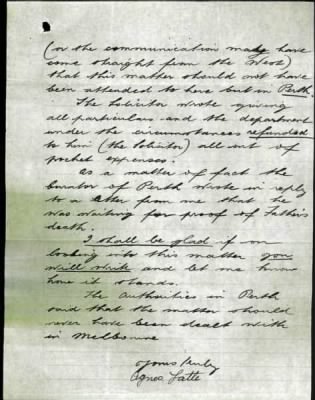 (or the communication may have
come straight from the West)
that this matter should not have
been attended to here but in Perth.
The Solicitor wrote giving
all particulars and the department
under the circumstances refunded
to him (the Solicitor) all out of
pocket expenses.
As a matter of fact the
Curator of Perth wrote in reply
to a letter from me that he
was waiting for proof of Father's
death.
I shall be glad if on
looking into this matter you
will write and let me know
how it stands.
The Authorities in Perth
said that the matter should
never have been dealt with
in Melbourne
Yours truly
Agnes